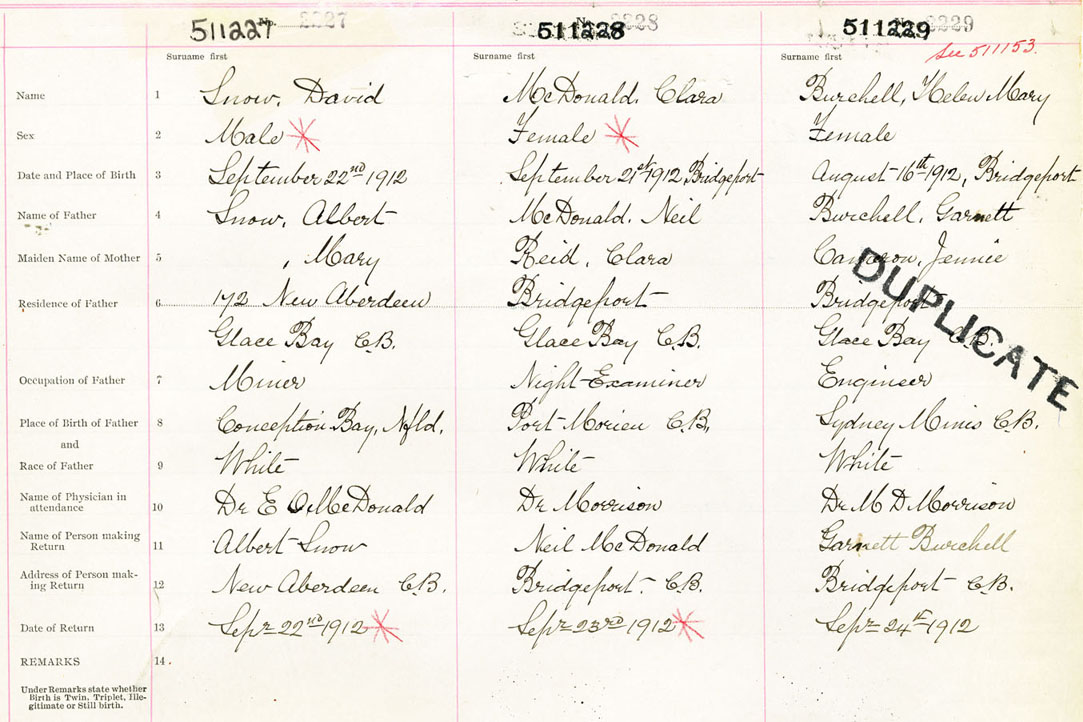 511227 No. 2227 511228 No. 2228 511229 No. 2229
See 511153.
Surname first Surname first Surname first
Name 1 Snow, David McDonald, Clara Burchell, Helen Mary
Sex 2 Male Female Female
Date and Place of Birth 3 September 22nd 1912 September 21st 1912, Bridgeport August 16th 1912, Bridgeport
Name of Father 4 Snow, Albert McDonald, Neil Burchell, Garnett
Maiden Name of Mother 5 , Mary Reid, Clara Cameron, Jennie
Residence of Father 6 172 New Aberdeen Bridgeport Bridgeport
Glace Bay C.B. Glace Bay C.B. Glace Bay C.B.
DUPLICATE
Occupation of Father 7 Miner Night-Examiner Engineer
Place of Birth of Father 8 Conception Bay, Nfld. Port-Morien C.B. Sydney Mines C.B.
and
Race of Father 9 White White White
Name of Physician in
attendance 10 Dr E O. McDonald Dr Morrison Dr M D Morrison
Name of Person making
Return 11 Albert Snow Neil McDonald Garnett Burchell
Address of Person mak-
ing Return 12 New Aberdeen C.B. Bridgeport. C.B. Bridgeport C.B.
Date of Return 13 Sepr 22nd 1912 Sepr 23rd 1912 Sepr 24th 1912
REMARKS 14.
Under Remarks state whether
Birth is Twin, Triplet, Ille-
gitimate or Still birth.